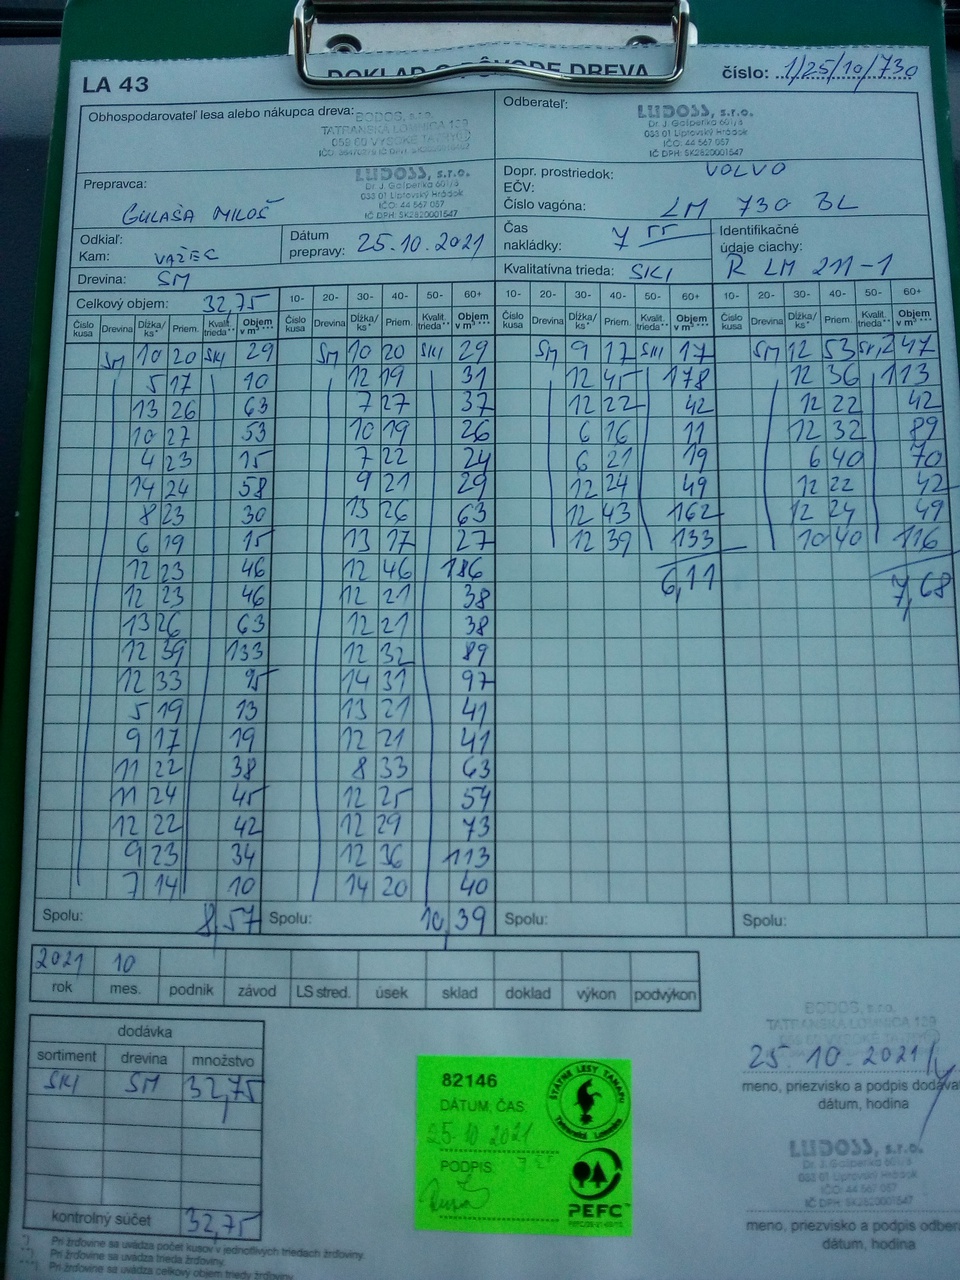 LA 43
DOKLAD O PÔVODE DREVA
číslo: 1/25/10/730
Obhospodarovateľ lesa alebo nákupca dreva: BODOS, s.r.o.
TATRANSKÁ LOMNICA 139
Odberateľ: LUDOSS, s.r.o.
Dr. J. Gašperíka 601/6
033 01 Liptovský Hrádok
IČO: 44 567 057
IČ DPH: SK2820001547
Prepravca: GULAŠA MILOŠ
LUDOSS, s.r.o.
Dr. J. Gašperíka 601/6
033 01 Liptovský Hrádok
IČO: 44 567 057
IČ DPH: SK2820001547
Dopr. prostriedok: VOLVO
EČV:
Číslo vagóna: LM 730 BL
Odkiaľ:
Kam: VAŽEC
Dátum prepravy: 25.10.2021
Čas nakládky: 7 55
Identifikačné údaje ciachy: R LM 211-1
Drevina: SM
Kvalitatívna trieda: SKI
Celkový objem: 32,75
10- 20- 30- 40- 50- 60+ 10- 20- 30- 40- 50- 60+ 10- 20- 30- 40- 50- 60+
Číslo kusa Drevina Dĺžka/ks* Priem. Kvalit. trieda** Objem v m³ Číslo kusa Drevina Dĺžka/ks* Priem. Kvalit. trieda** Objem v m³ Číslo kusa Drevina Dĺžka/ks* Priem. Kvalit. trieda** Objem v m³ Číslo kusa Drevina Dĺžka/ks* Priem. Kvalit. trieda** Objem v m³
SM 10 20 SKI 29 SM 10 20 SKI 29 SM 9 17 SKI 17 SM 12 53 247
5 17 10 12 19 31 12 45 178 12 36 113
13 26 63 7 27 37 12 22 42 12 22 42
10 27 53 10 19 26 6 16 11 12 32 89
4 23 15 7 22 24 6 21 19 6 40 70
14 24 58 9 21 29 12 24 49 12 22 42
8 23 30 13 26 63 12 43 162 12 24 49
6 19 15 13 17 27 12 39 133 10 40 116
12 23 46 12 46 186 6,11 7,68
12 23 46 12 21 38
13 26 63 12 21 38
12 39 133 12 32 89
12 33 95 14 31 97
5 19 13 13 21 41
9 17 19 12 21 41
11 22 38 8 33 63
11 24 45 12 25 54
12 22 42 12 29 73
9 23 34 12 36 113
7 14 10 14 20 40
Spolu: 8,57 Spolu: 10,39 Spolu: Spolu:
2021 10
rok mes. podnik závod LS stred. úsek sklad doklad výkon podvýkon
dodávka
sortiment drevina množstvo
SKI SM 32,75
kontrolný súčet 32,75
82146
DÁTUM, ČAS:
25.10 2021
PODPIS:
ŠTÁTNE LESY TANAPU
Tatranská Lomnica
PEFC
BODOS, s.r.o.
TATRANSKÁ LOMNICA 139
25.10.2021
meno, priezvisko a podpis dodáva
dátum, hodina
LUDOSS, s.r.o.
Dr. J. Gašperíka 601/6
033 01 Liptovský Hrádok
IČO: 44 567 057
IČ DPH: SK2820001547
meno, priezvisko a podpis odber
dátum, hodina
*) Pri žrďovine sa uvádza počet kusov v jednotlivých triedach žrďoviny.
**) Pri žrďovine sa uvádza trieda žrďoviny.
Pri žrďovine sa uvádza celkový objem triedy žrďoviny.